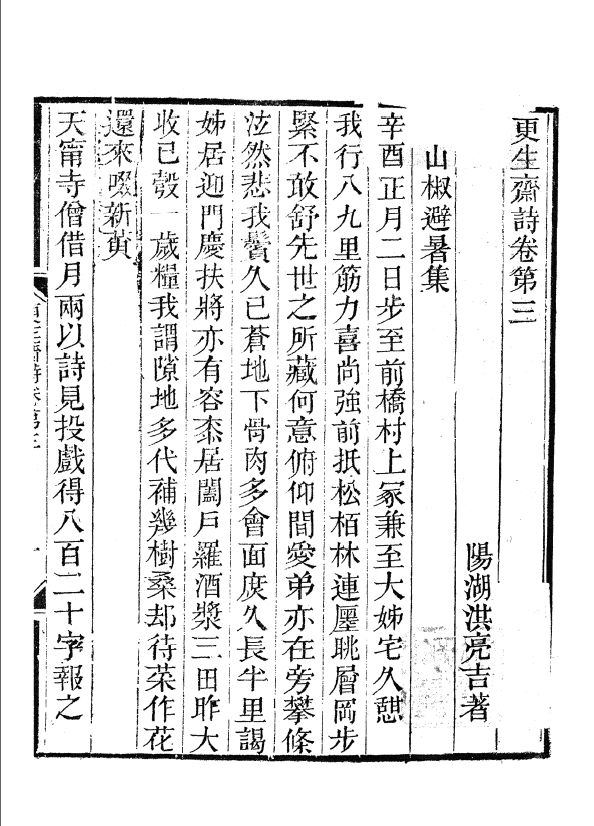 更生齋詩卷第三
陽湖洪亮吉著
山椒避暑集
辛酉正月二日步至前橋村上冢兼至大姊宅久憇
我行八九里筋力喜尚強前抵松栢林連壓眺層岡步
緊不敢舒先世之所藏何意俯仰間愛弟亦在旁攀條
泣然悲我鬢久已蒼地下骨肉多會面庻久長牛里謁
姊居迎門慶扶將亦有容桼居闔戸羅酒漿三田昨大
收已彀一歲糧我謂隙地多代補幾樹桑却待菜作花
還來啜新黃
天甯寺僧借月兩以詩見投戲得八百二十字報之
更生齋詩卷第三
一